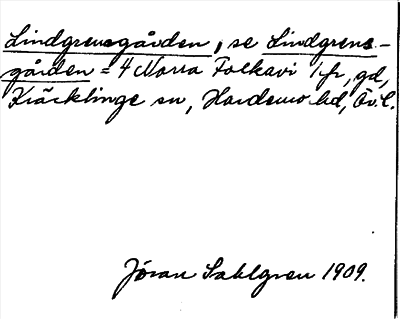 Lindgrensgården, se Lindgrens-
gården = 4 Norra Folkavi 1 fr, gd,
Kräcklinge sn, Hardemo hd, Ör.l.
Jöran Sahlgren 1909.